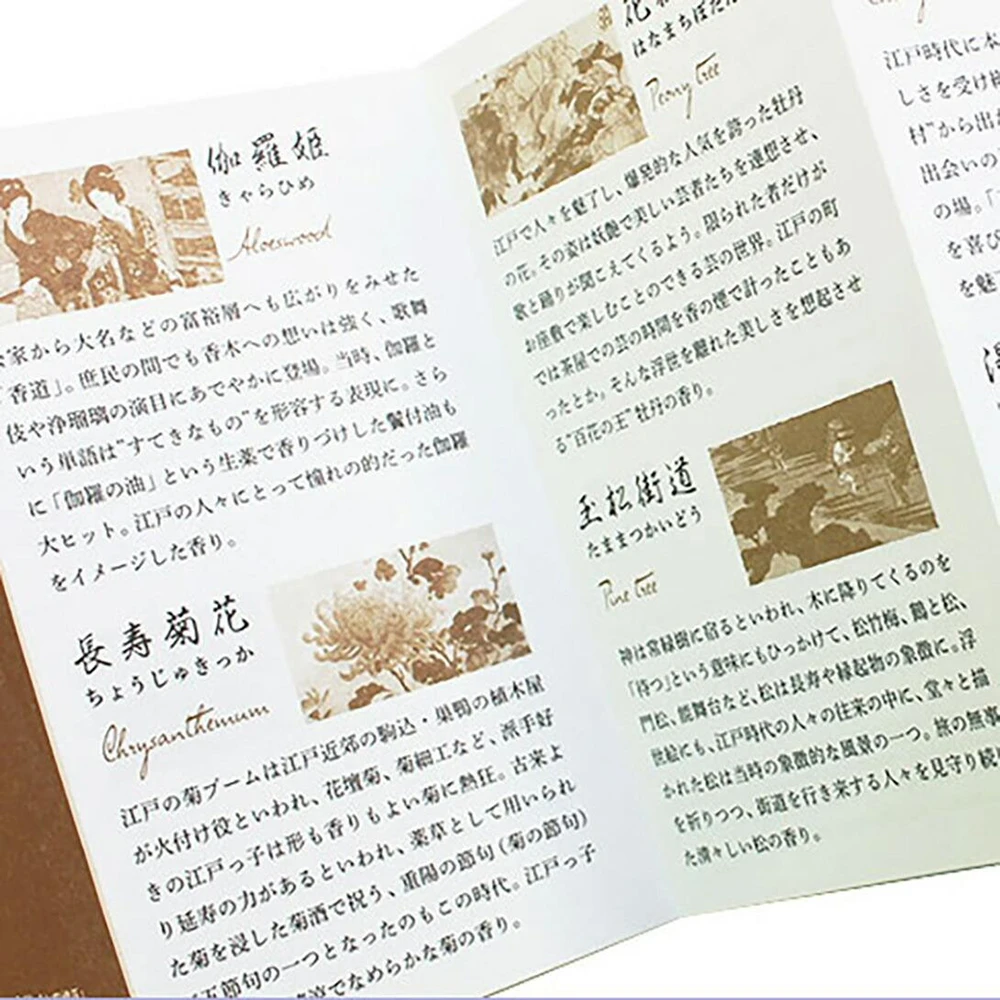 伽羅姫
きゃらひめ
Aloeswood
家から大名などの富裕層へも広がりをみせた
「香道」。庶民の間でも香木への想いは強く、歌舞
伎や浄瑠璃の演目にあでやかに登場。当時、伽羅と
いう単語は"すてきなもの"を形容する表現に。さら
に「伽羅の油」という生薬で香りづけした鬢付油も
大ヒット。江戸の人々にとって憧れの的だった伽羅
をイメージした香り。
長寿菊花
ちょうじゅきっか
Chrysanthemum
江戸の菊ブームは江戸近郊の駒込・巣鴨の植木屋
が火付け役といわれ、花壇菊、菊細工など、派手好
きの江戸っ子は形も香りもよい菊に熱狂。古来よ
り延寿の力があるといわれ、薬草として用いられ
た菊を浸した菊酒で祝う、重陽の節句(菊の節句)
五節句の一つとなったのもこの時代。江戸っ子
でなめらかな菊の香り。
花
はなまちぼたん
Peony Tree
江戸で人々を魅了し、爆発的な人気を誇った牡丹
の花。その姿は妖艶で美しい芸者たちを連想させ、
歌と踊りが聞こえてくるよう。限られた者だけが
お座敷で楽しむことのできる芸の世界。江戸の町
では茶屋での芸の時間を香の煙で計ったこともあ
ったとか。そんな浮世を離れた美しさを想起させ
る"百花の王"牡丹の香り。
玉松街道
たままつかいどう
Pine Tree
神は常緑樹に宿るといわれ、木に降りてくるのを
「待つ」という意味にもひっかけて、松竹梅、鶴と松、
門松、能舞台など、松は長寿や縁起物の象徴に。浮
世絵にも、江戸時代の人々の往来の中に、堂々と描
かれた松は当時の象徴的な風景の一つ。旅の無事
を祈りつつ、街道を行き来する人々を見守り続
た清々しい松の香り。
江戸時代に本
しさを受け
村"から出
出会いの
の場。「
を喜び
を魅